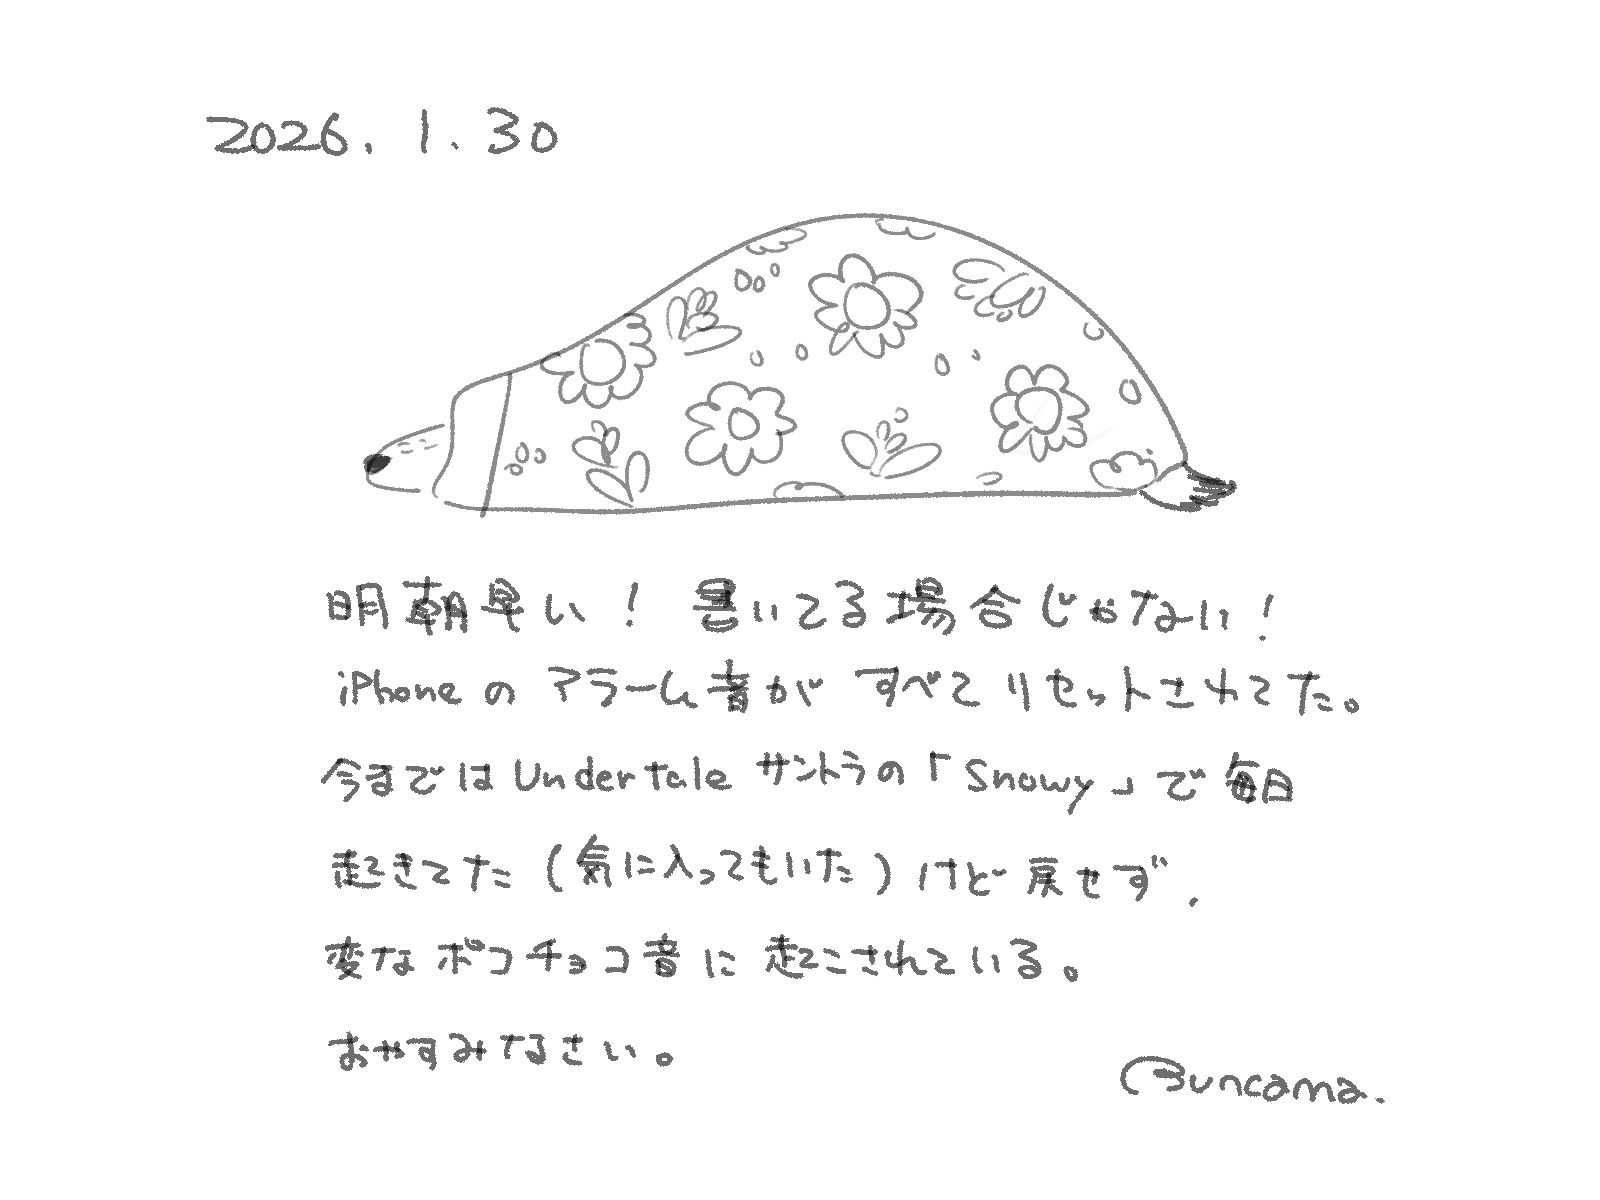 2026. 1. 30
明朝早い! 書いてる場合じゃない!
iPhoneのアラーム音がすべてリセットされてた。
今まではUndertaleサントラの「Snowy」で毎日
起きてた(気に入ってもいた)けど戻せず、
変なポコチョコ音に起こされている。
おやすみなさい。
Buncama.